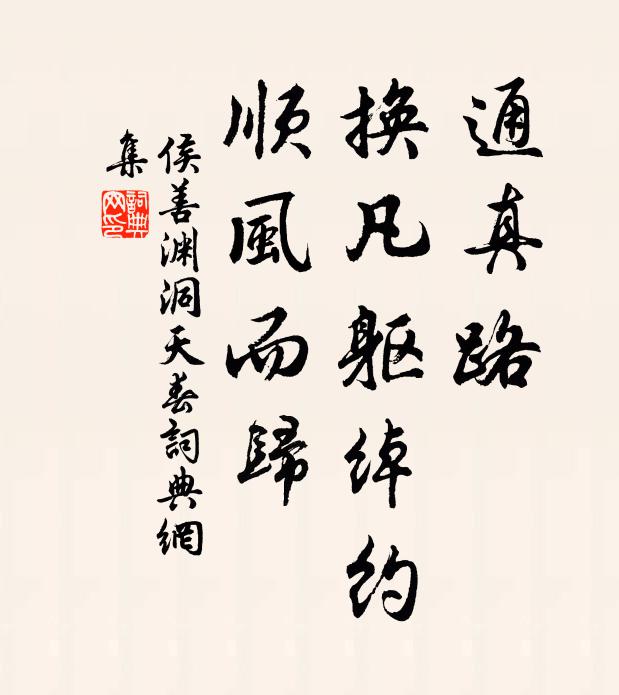 通真路
換凡軀綽約
順風而歸
侯善渊洞天春詞典網
集
詞典网印